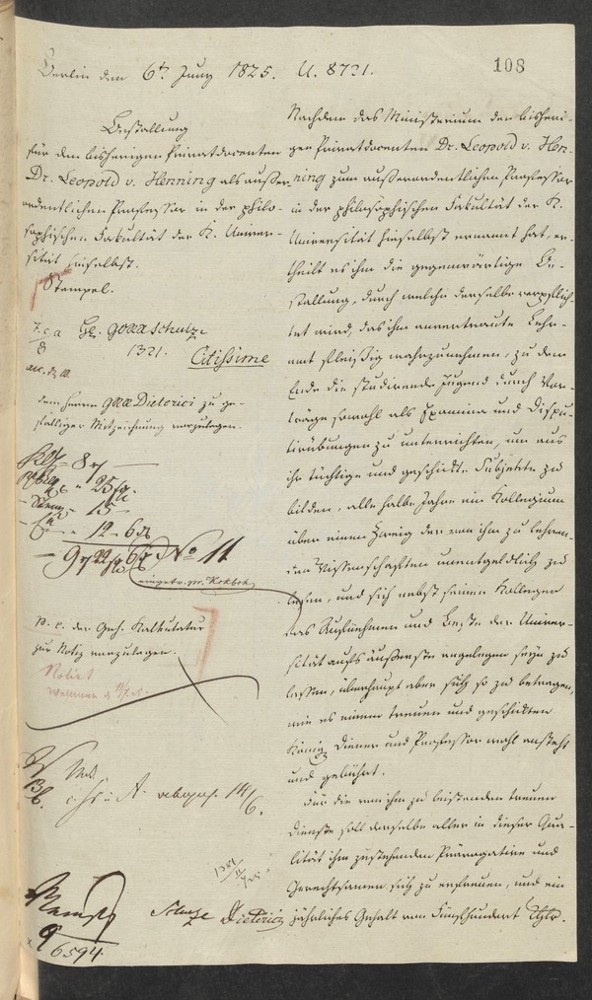 108
Berlin den 6t. Juny 1825. U. 8731.
Bestallung
für den bisherigen Privatdocenten
Dr. Leopold v. Henning als außer-
ordentlichen Professor in der philo-
sophischen Fakultät der K. Univer-
sität hieselbst.
Stempel.
Schulze
1321.
Citissime
dem Herrn Dieterici zu ge-
fälliger Mitzeichnung vorzulegen.
8
25
15
12 - 6
No 11
der Geh. Kalkulatur
zur Notiz vorzulegen.
Notirt
14/6.
Schulze Dieterici
6594
Nachdem das Ministerium den bisheri-
gen Privatdocenten Dr. Leopold v. Hen-
ning zum außerordentlichen Professor
in der philosophischen Fakultät der K.
Universität hieselbst ernannt hat, er-
theilt es ihm die gegenwärtige Be-
stallung, durch welche derselbe verpflich-
tet wird, das ihm anvertraute Lehr-
amt fleißig wahrzunehmen, zu dem
Ende die studirende Jugend durch Vor-
träge sowohl als Examina und Dispu-
tirübungen zu unterrichten, um aus
ihr tüchtige und geschickte Subjekte zu
bilden, alle halbe Jahre ein Kollegium
über einen Zweig der von ihm zu lehren-
den Wissenschaften unentgeldlich zu
lesen, und sich nebst seinen Kollegen
das Aufnehmen und Beste der Univer-
sität aufs äußerste angelegen seyn zu
lassen, überhaupt aber sich so zu betragen,
wie es einem treuen und geschickten
Königl. Diener und Professor wohl ansteht
und gebührt.
Für die von ihm zu leistenden treuen
Dienste soll derselbe aller in dieser Qua-
lität ihm zustehenden Prärogative und
Gerechtsamen sich zu erfreuen, und ein
jährliches Gehalt von Fünfhundert Thlr.